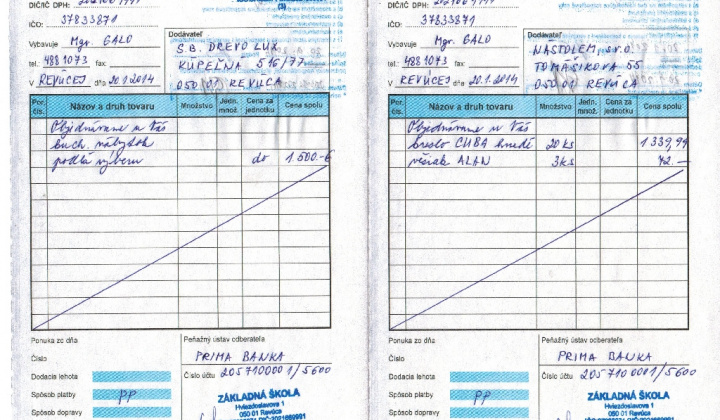 DIČ/IČ DPH:
IČO: 37833871
Vybavuje Mgr. GALO
tel.: 488 1073 fax:
V REVÚCEJ dňa 20.1.2014
Dodávateľ
S.B. DREVO LUX
KÚPEĽNA 516/77
050 01 REVÚCA
Por. čís.
Názov a druh tovaru
Množstvo
Jedn. množ.
Cena za jednotku
Cena spolu
Objednávame u Vás
kuch. nábytok
podľa výberu do 1 500.-€
Ponuka zo dňa
Číslo
Dodacia lehota
Spôsob platby PP
Spôsob dopravy
Peňažný ústav odberateľa
PRIMA BANKA
Číslo účtu 2057100001/5600
ZÁKLADNÁ ŠKOLA
Hviezdoslavova 1
050 01 Revúca
DIČ/IČ DPH:
IČO: 37833871
Vybavuje Mgr. GALO
tel.: 488 1073 fax:
V REVÚCEJ dňa 20.1.2014
Dodávateľ
NÁSTOLEM, s.r.o.
TOMÁŠIKOVA 55
050 01 REVÚCA
Por. čís.
Názov a druh tovaru
Množstvo
Jedn. množ.
Cena za jednotku
Cena spolu
Objednávame u Vás
kreslo CUBA hnedé 20 ks 1 339,99
vešiak ALAN 3 ks 72.—
Ponuka zo dňa
Číslo
Dodacia lehota
Spôsob platby PP
Spôsob dopravy
Peňažný ústav odberateľa
PRIMA BANKA
Číslo účtu 2057100001/5600
ZÁKLADNÁ ŠKOLA
Hviezdoslavova 1
050 01 Revúca